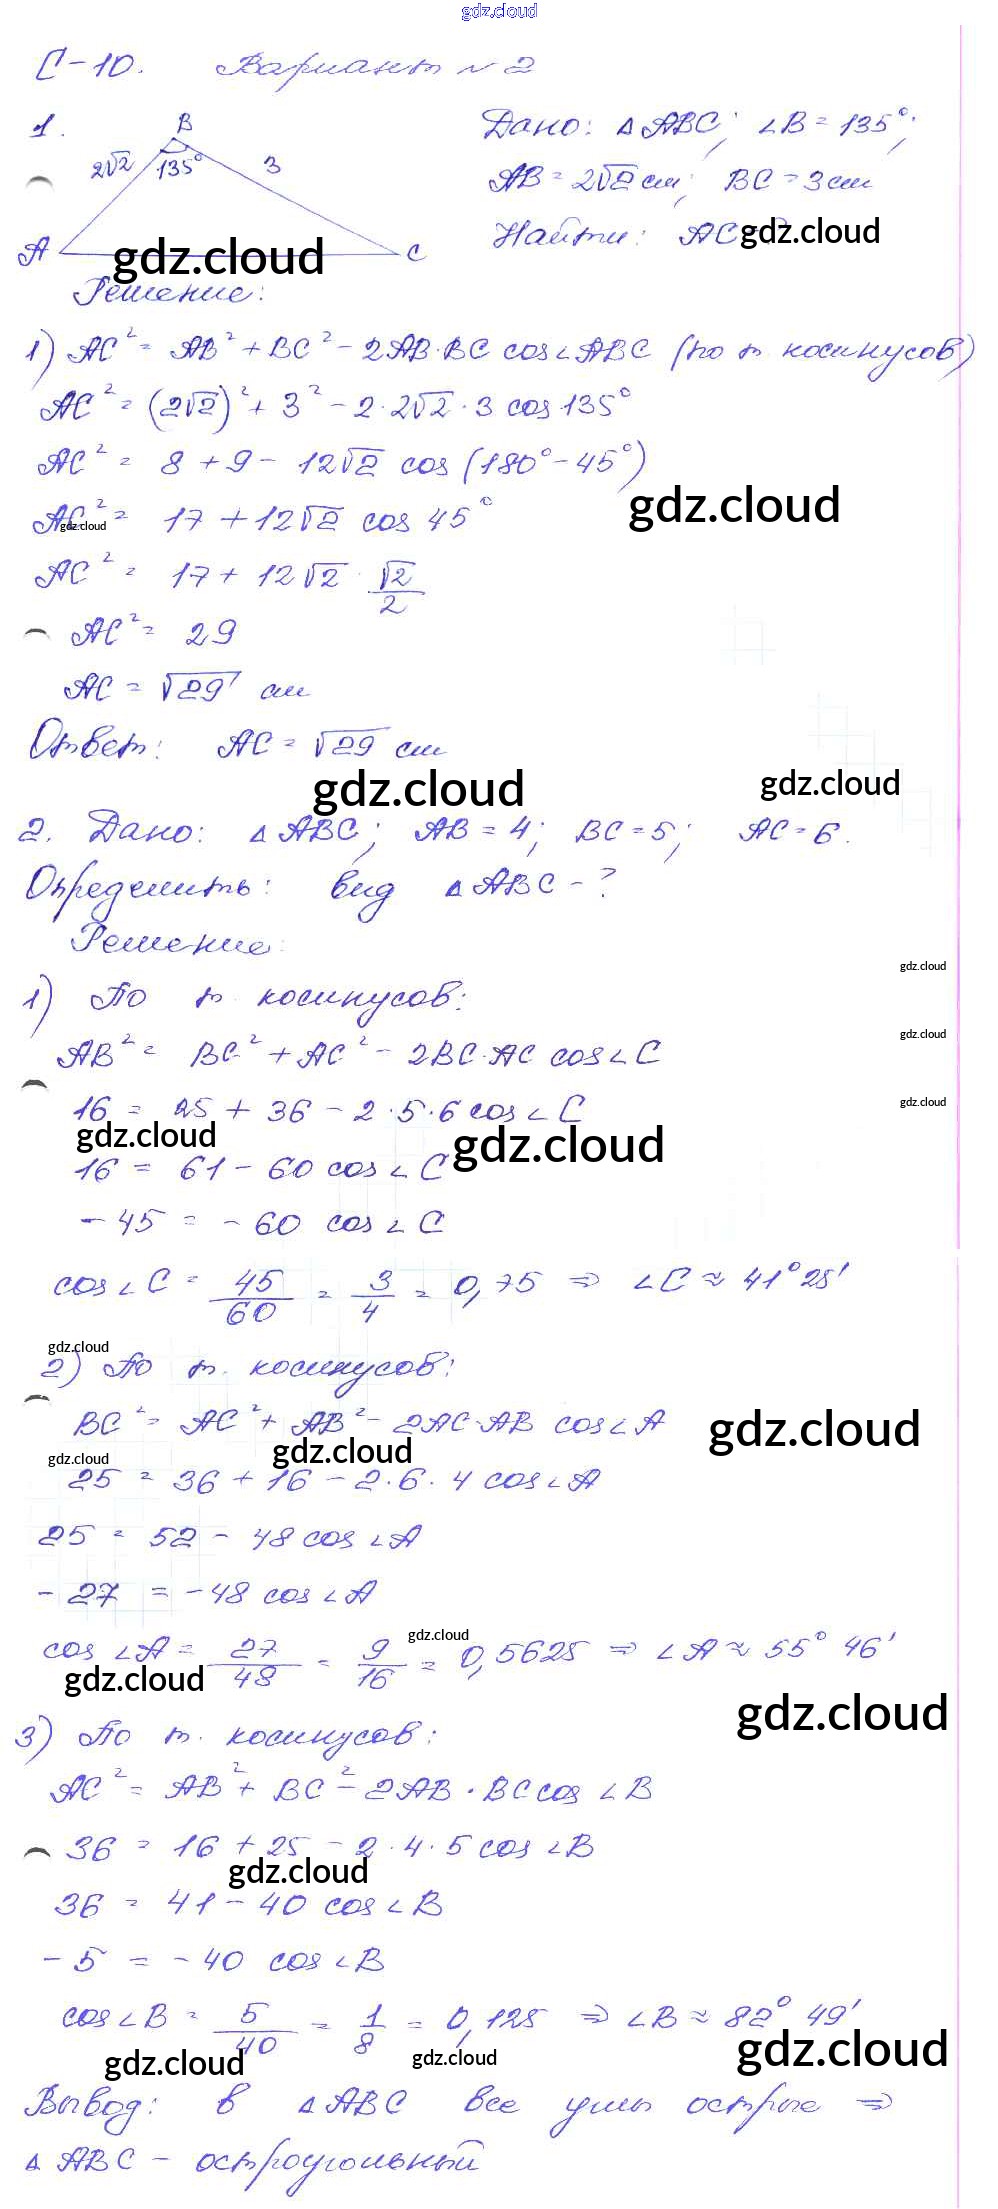 gdz.cloud
С-10. Вариант №2
1.
B
2√2 135° 3
A C
Дано: △ABC; ∠B = 135°;
AB = 2√2 см; BC = 3 см
Найти: AC - ?
gdz.cloud
gdz.cloud
Решение:
1) AC² = AB² + BC² - 2AB·BC cos∠ABC (по т. косинусов)
AC² = (2√2)² + 3² - 2·2√2·3 cos 135°
AC² = 8 + 9 - 12√2 cos (180° - 45°)
gdz.cloud
AC² = 17 + 12√2 cos 45°
gdz.cloud
AC² = 17 + 12√2 · √2/2
AC² = 29
AC = √29 см
Ответ: AC = √29 см
gdz.cloud
gdz.cloud
2. Дано: △ABC; AB = 4; BC = 5; AC = 6.
Определить: вид △ABC - ?
Решение:
gdz.cloud
1) По т. косинусов:
gdz.cloud
AB² = BC² + AC² - 2BC·AC cos∠C
gdz.cloud
16 = 25 + 36 - 2·5·6 cos∠C
gdz.cloud
gdz.cloud
16 = 61 - 60 cos∠C
- 45 = - 60 cos∠C
cos∠C = 45/60 = 3/4 = 0,75 ⇒ ∠C ≈ 41°25'
gdz.cloud
2) По т. косинусов:
BC² = AC² + AB² - 2AC·AB cos∠A
gdz.cloud
gdz.cloud
gdz.cloud
25 = 36 + 16 - 2·6·4 cos∠A
25 = 52 - 48 cos∠A
- 27 = - 48 cos∠A
gdz.cloud
cos∠A = 27/48 = 9/16 = 0,5625 ⇒ ∠A ≈ 55° 46'
gdz.cloud
gdz.cloud
3) По т. косинусов:
AC² = AB² + BC² - 2AB·BC cos∠B
36 = 16 + 25 - 2·4·5 cos∠B
gdz.cloud
36 = 41 - 40 cos∠B
- 5 = - 40 cos∠B
cos∠B = 5/40 = 1/8 = 0,125 ⇒ ∠B ≈ 82° 49'
gdz.cloud
gdz.cloud
gdz.cloud
Вывод: в △ABC все углы острые ⇒
△ABC - остроугольный